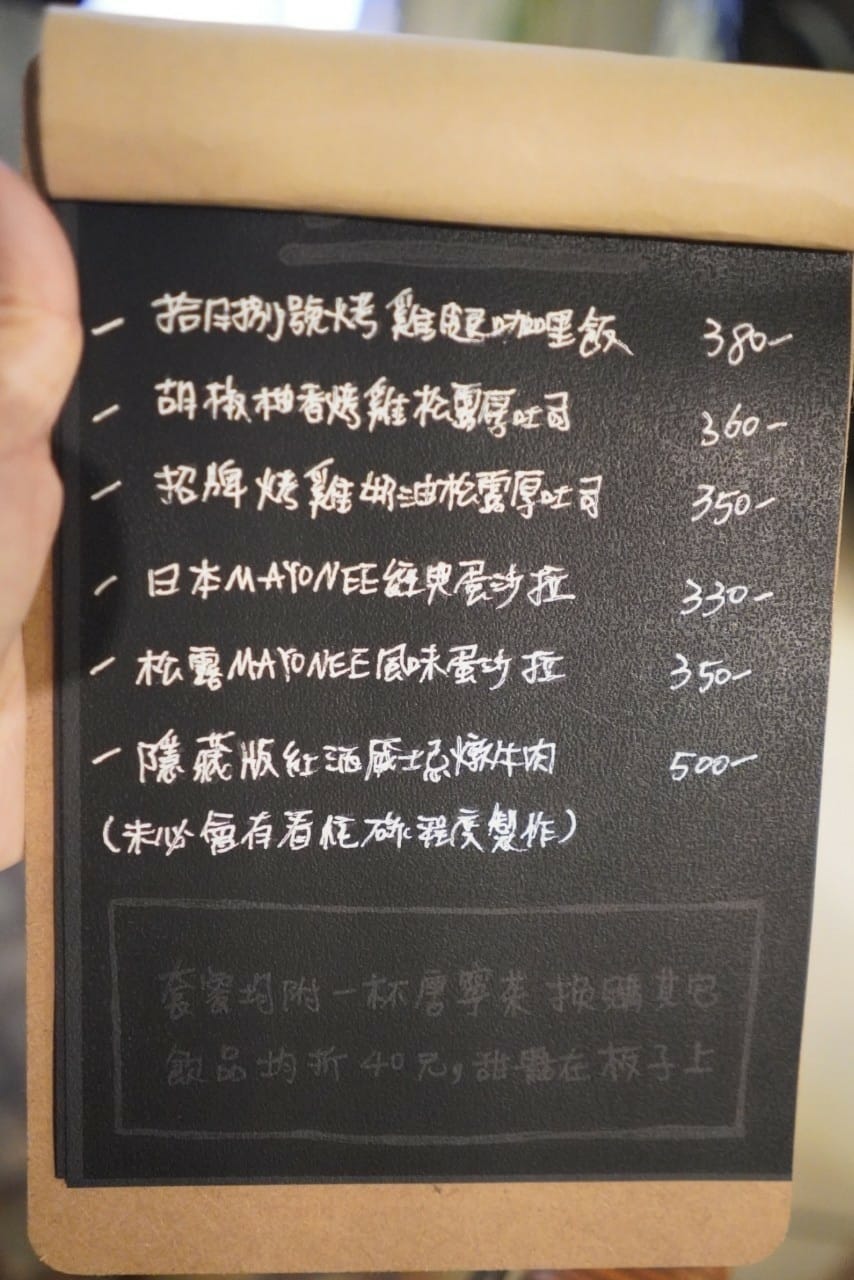 - 拾月捌號烤雞腿咖哩飯 380-
- 胡椒柚香烤雞松露厚吐司 360-
- 招牌烤雞奶油松露厚吐司 350-
- 日本MAYONEE經典蛋沙拉 330-
- 松露MAYONEE風味蛋沙拉 350-
- 隱藏版紅酒威士忌燉牛肉 500-
(未必會有看忙碌程度製作)
套餐均附一杯唐寧茶 換購其它
飲品均折40元,甜點在板子上